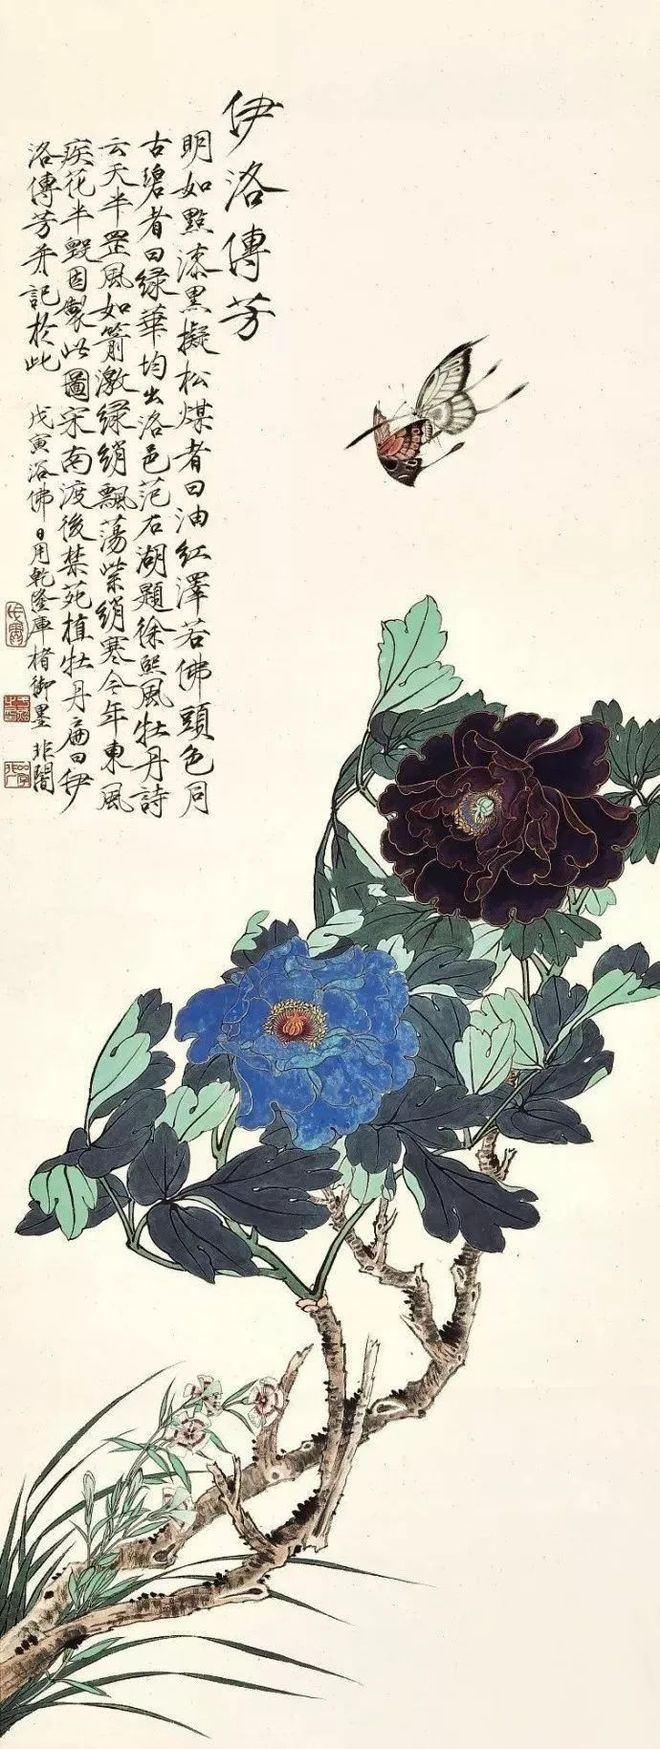 伊洛傳芳
明如點漆黑擬松煤者曰油紅澤若佛頭色同
古碧者曰綠華均出洛邑范石湖題徐熙風牡丹詩
云天半罡風如箭激綠綃飄蕩紫綃寒今年東風
疾花半毀因製此圖宋南渡後禁苑植牡丹扁曰伊
洛傳芳并記於此
戊寅浴佛日用乾隆庫楮御墨 非闇